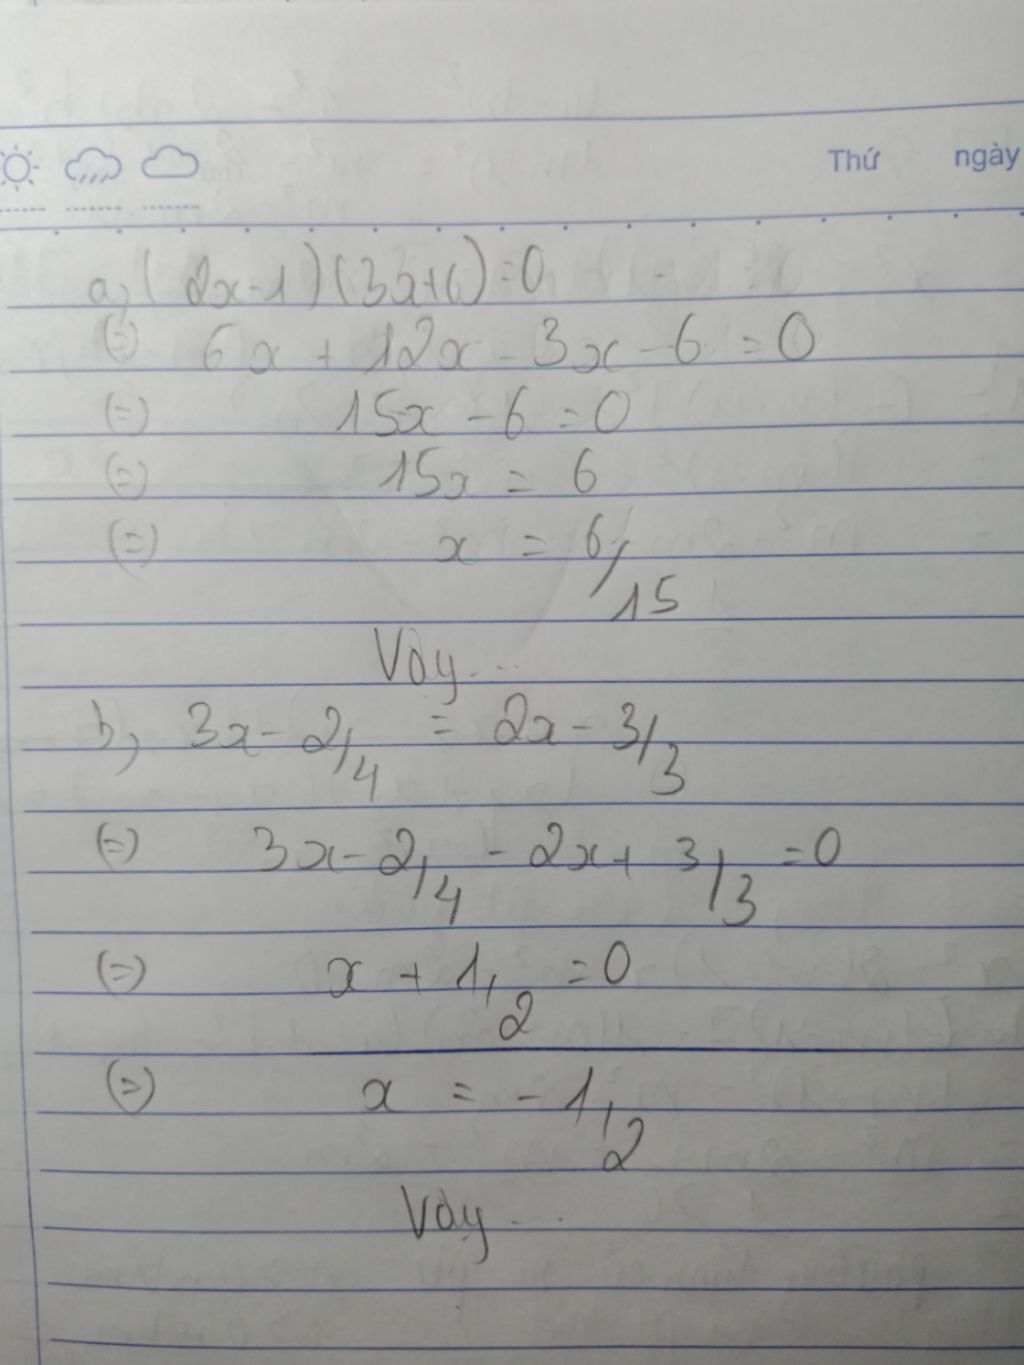 Thứ ngày
a, (2x-1)(3x+6)=0
(=) 6x + 12x - 3x - 6 = 0
(=) 15x - 6 = 0
(=) 15x = 6
(=) x = 6/15
Vậy...
b, 3x - 2/4 = 2x - 3/3
(=) 3x - 2/4 - 2x + 3/3 = 0
(=) x + 1/2 = 0
(=) x = -1/2
Vậy...